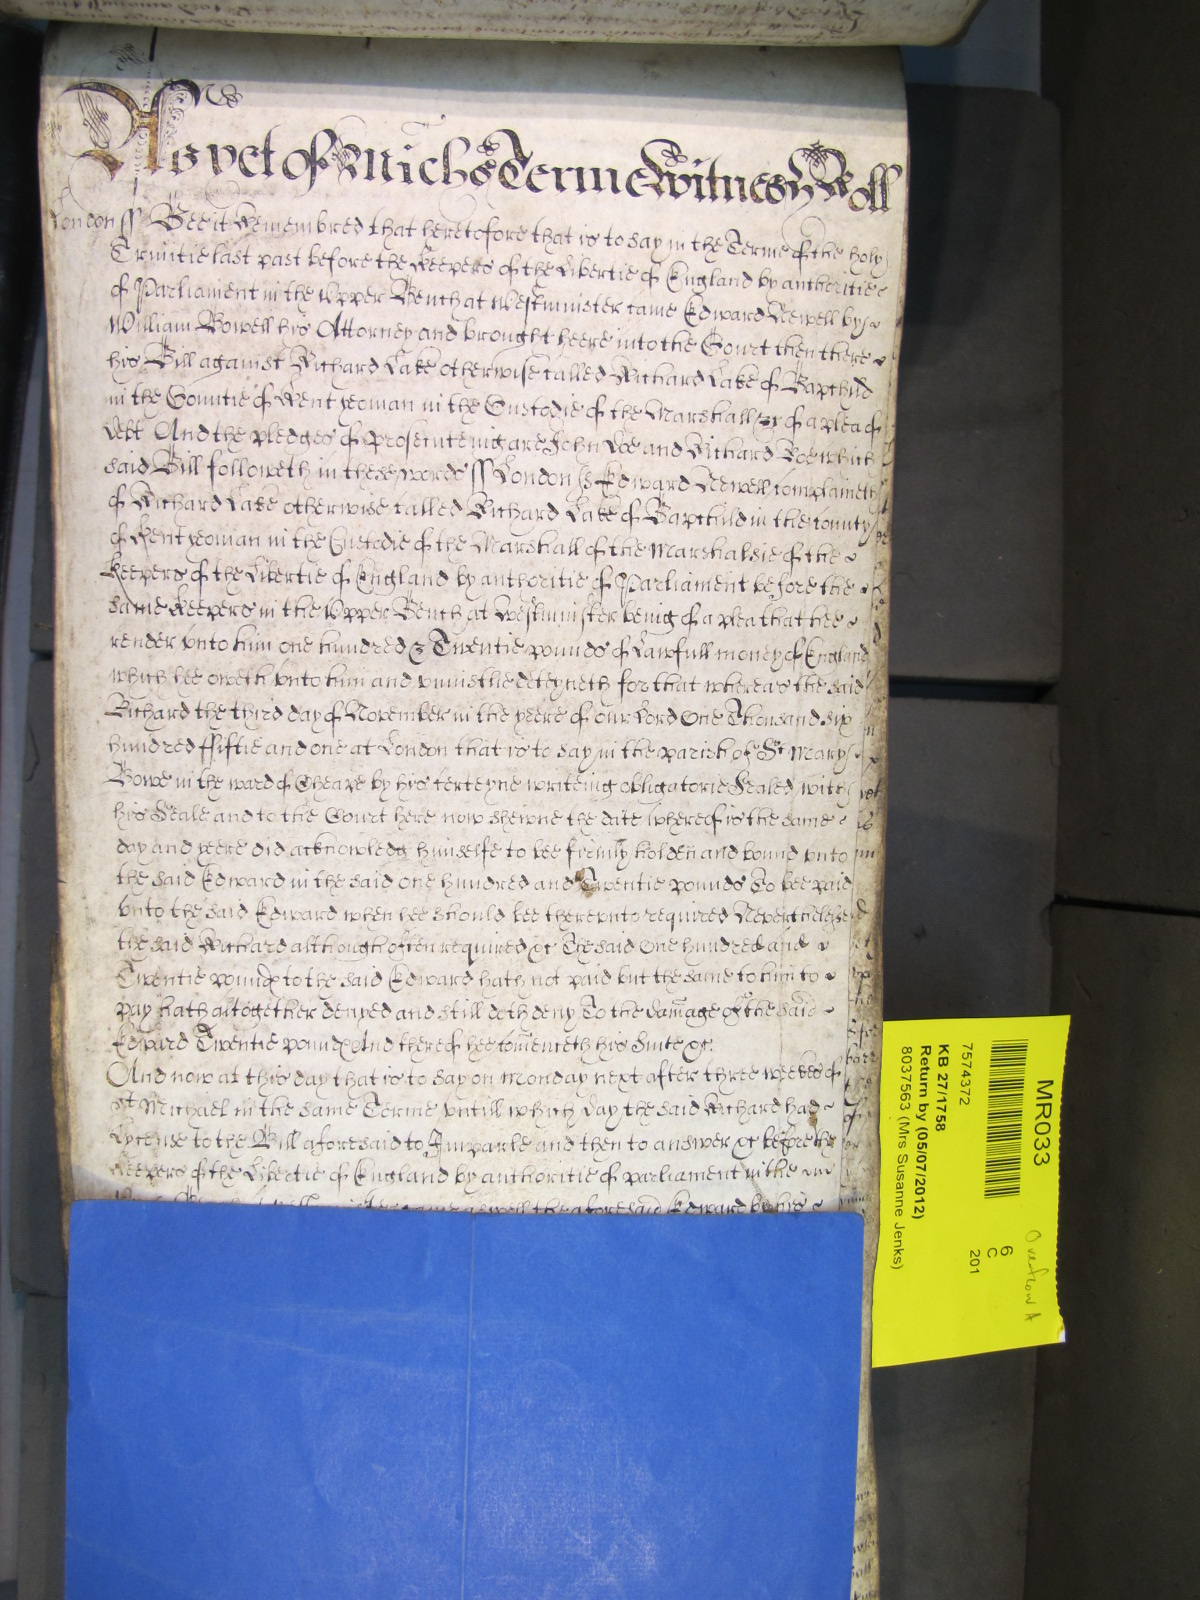 As yet of Michs Terme Witnes Roll
London ss Bee it Remembred that heretofore that is to say in the Terme of the holy
Trinitie last past before the Keepers of the Libertie of England by authoritie
of Parliament in the Upper Bench at Westminster came Edward Newell by
William Rowell his Attorney and brought heere into the Court then there
his Bill against Richard Lake otherwise called Richard Lake of Bapchild
in the Countie of Kent yeoman in the Custodie of the Marshall &c of a plea of
debt And the pledges of prosecuteinge are John Doe and Richard Roe which
said Bill followeth in these words ss London ss Edward Newell complaineth
of Richard Lake otherwise called Richard Lake of Bapchild in the County
of Kent yeoman in the Custodie of the Marshall of the Marshalsie of the
Keepers of the Libertie of England by authoritie of Parliament before the
same Keepers in the Upper Bench at Westminster being of a plea that hee
render unto him one hundred & Twentie pounds of Lawfull money of England
which hee oweth unto him and uniustlie deteyneth for that whereas the said
Richard the third day of November in the yeere of our Lord One Thousand six
hundred fiftie and one at London that is to say in the parish of St Mary
Bowe in the ward of Cheape by his certeyne writeing obligatorie Sealed with
his Seale and to the Court here now shewne the date whereof is the same
day and yeere did acknowledg himselfe to bee firmly holden and bound unto
the said Edward in the said one hundred and Twentie pounds To bee paid
unto the said Edward when hee should bee thereunto required Neverthelesse
the said Richard although often required &c The said One hundred and
Twentie pounds to the said Edward hath not paid but the same to him to
pay hath altogether denyed and still doth deny To the damage of the said
Edward Twentie pounds And thereof hee comenceth his Suite &c.
And now at this day that is to say on Monday next after three weekes of
St Michael in the same Terme untill which day the said Richard had
Lycense to the Bill aforesaid to Imparle and then to answer &c before the
Keepers of the Libertie of England by authoritie of parliament in the
came aswell the aforesaid Edward by his
MR033
7574372
KB 27/1758
Return by (05/07/2012)
8037563 (Mrs Susanne Jenks)
6
C
201
Overflow A